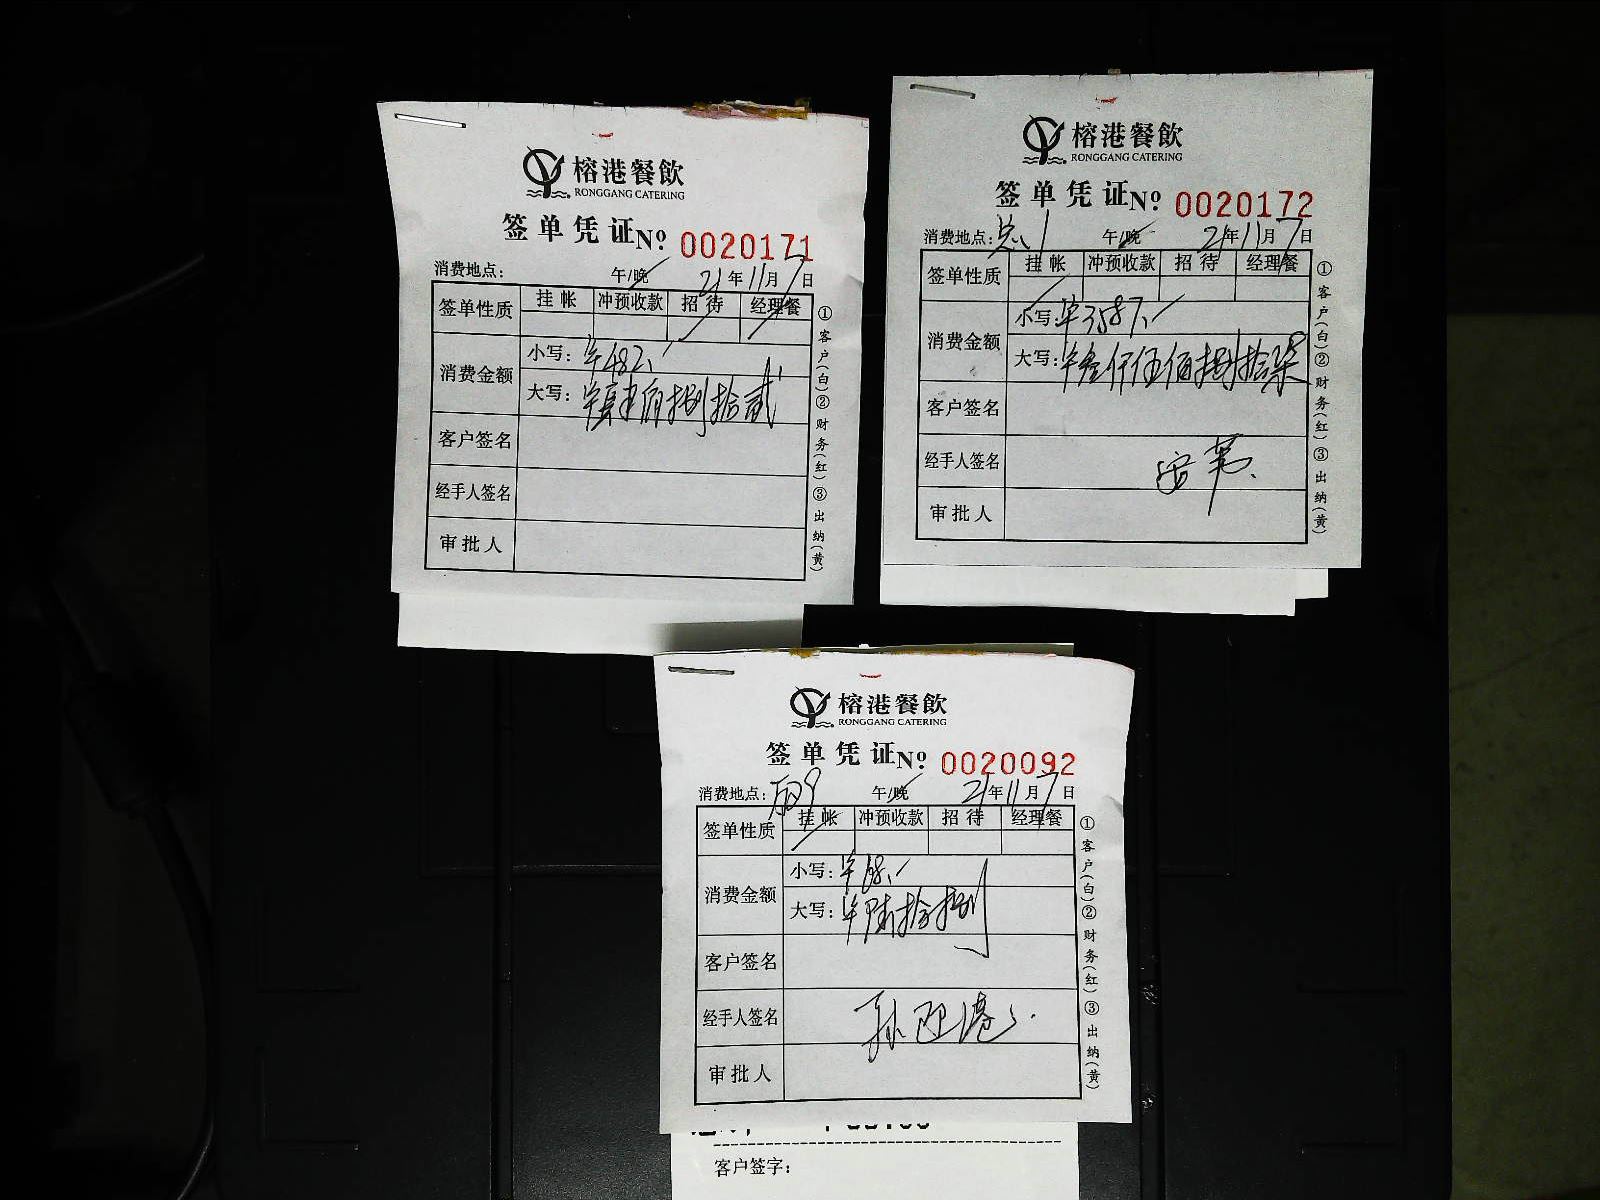 榕港餐飲
RONGGANG CATERING
签单凭证 Nº 0020171
消费地点： 午/晚 21年11月7日
签单性质 挂帐 冲预收款 招待 经理餐
消费金额 小写：¥482
大写：佰捌拾贰
客户签名
经手人签名
审批人
①客户(白)②财务(红)③出纳(黄)
榕港餐飲
RONGGANG CATERING
签单凭证 Nº 0020172
消费地点：总1 午/晚 21年11月7日
签单性质 挂帐 冲预收款 招待 经理餐
消费金额 小写：¥3587
大写：¥叁仟伍佰捌拾柒
客户签名
经手人签名
审批人
①客户(白)②财务(红)③出纳(黄)
榕港餐飲
RONGGANG CATERING
签单凭证 Nº 0020092
消费地点： 午/晚 21年11月7日
签单性质 挂帐 冲预收款 招待 经理餐
消费金额 小写：¥68
大写：¥陆拾捌
客户签名
经手人签名 孙
审批人
①客户(白)②财务(红)③出纳(黄)
客户签字：